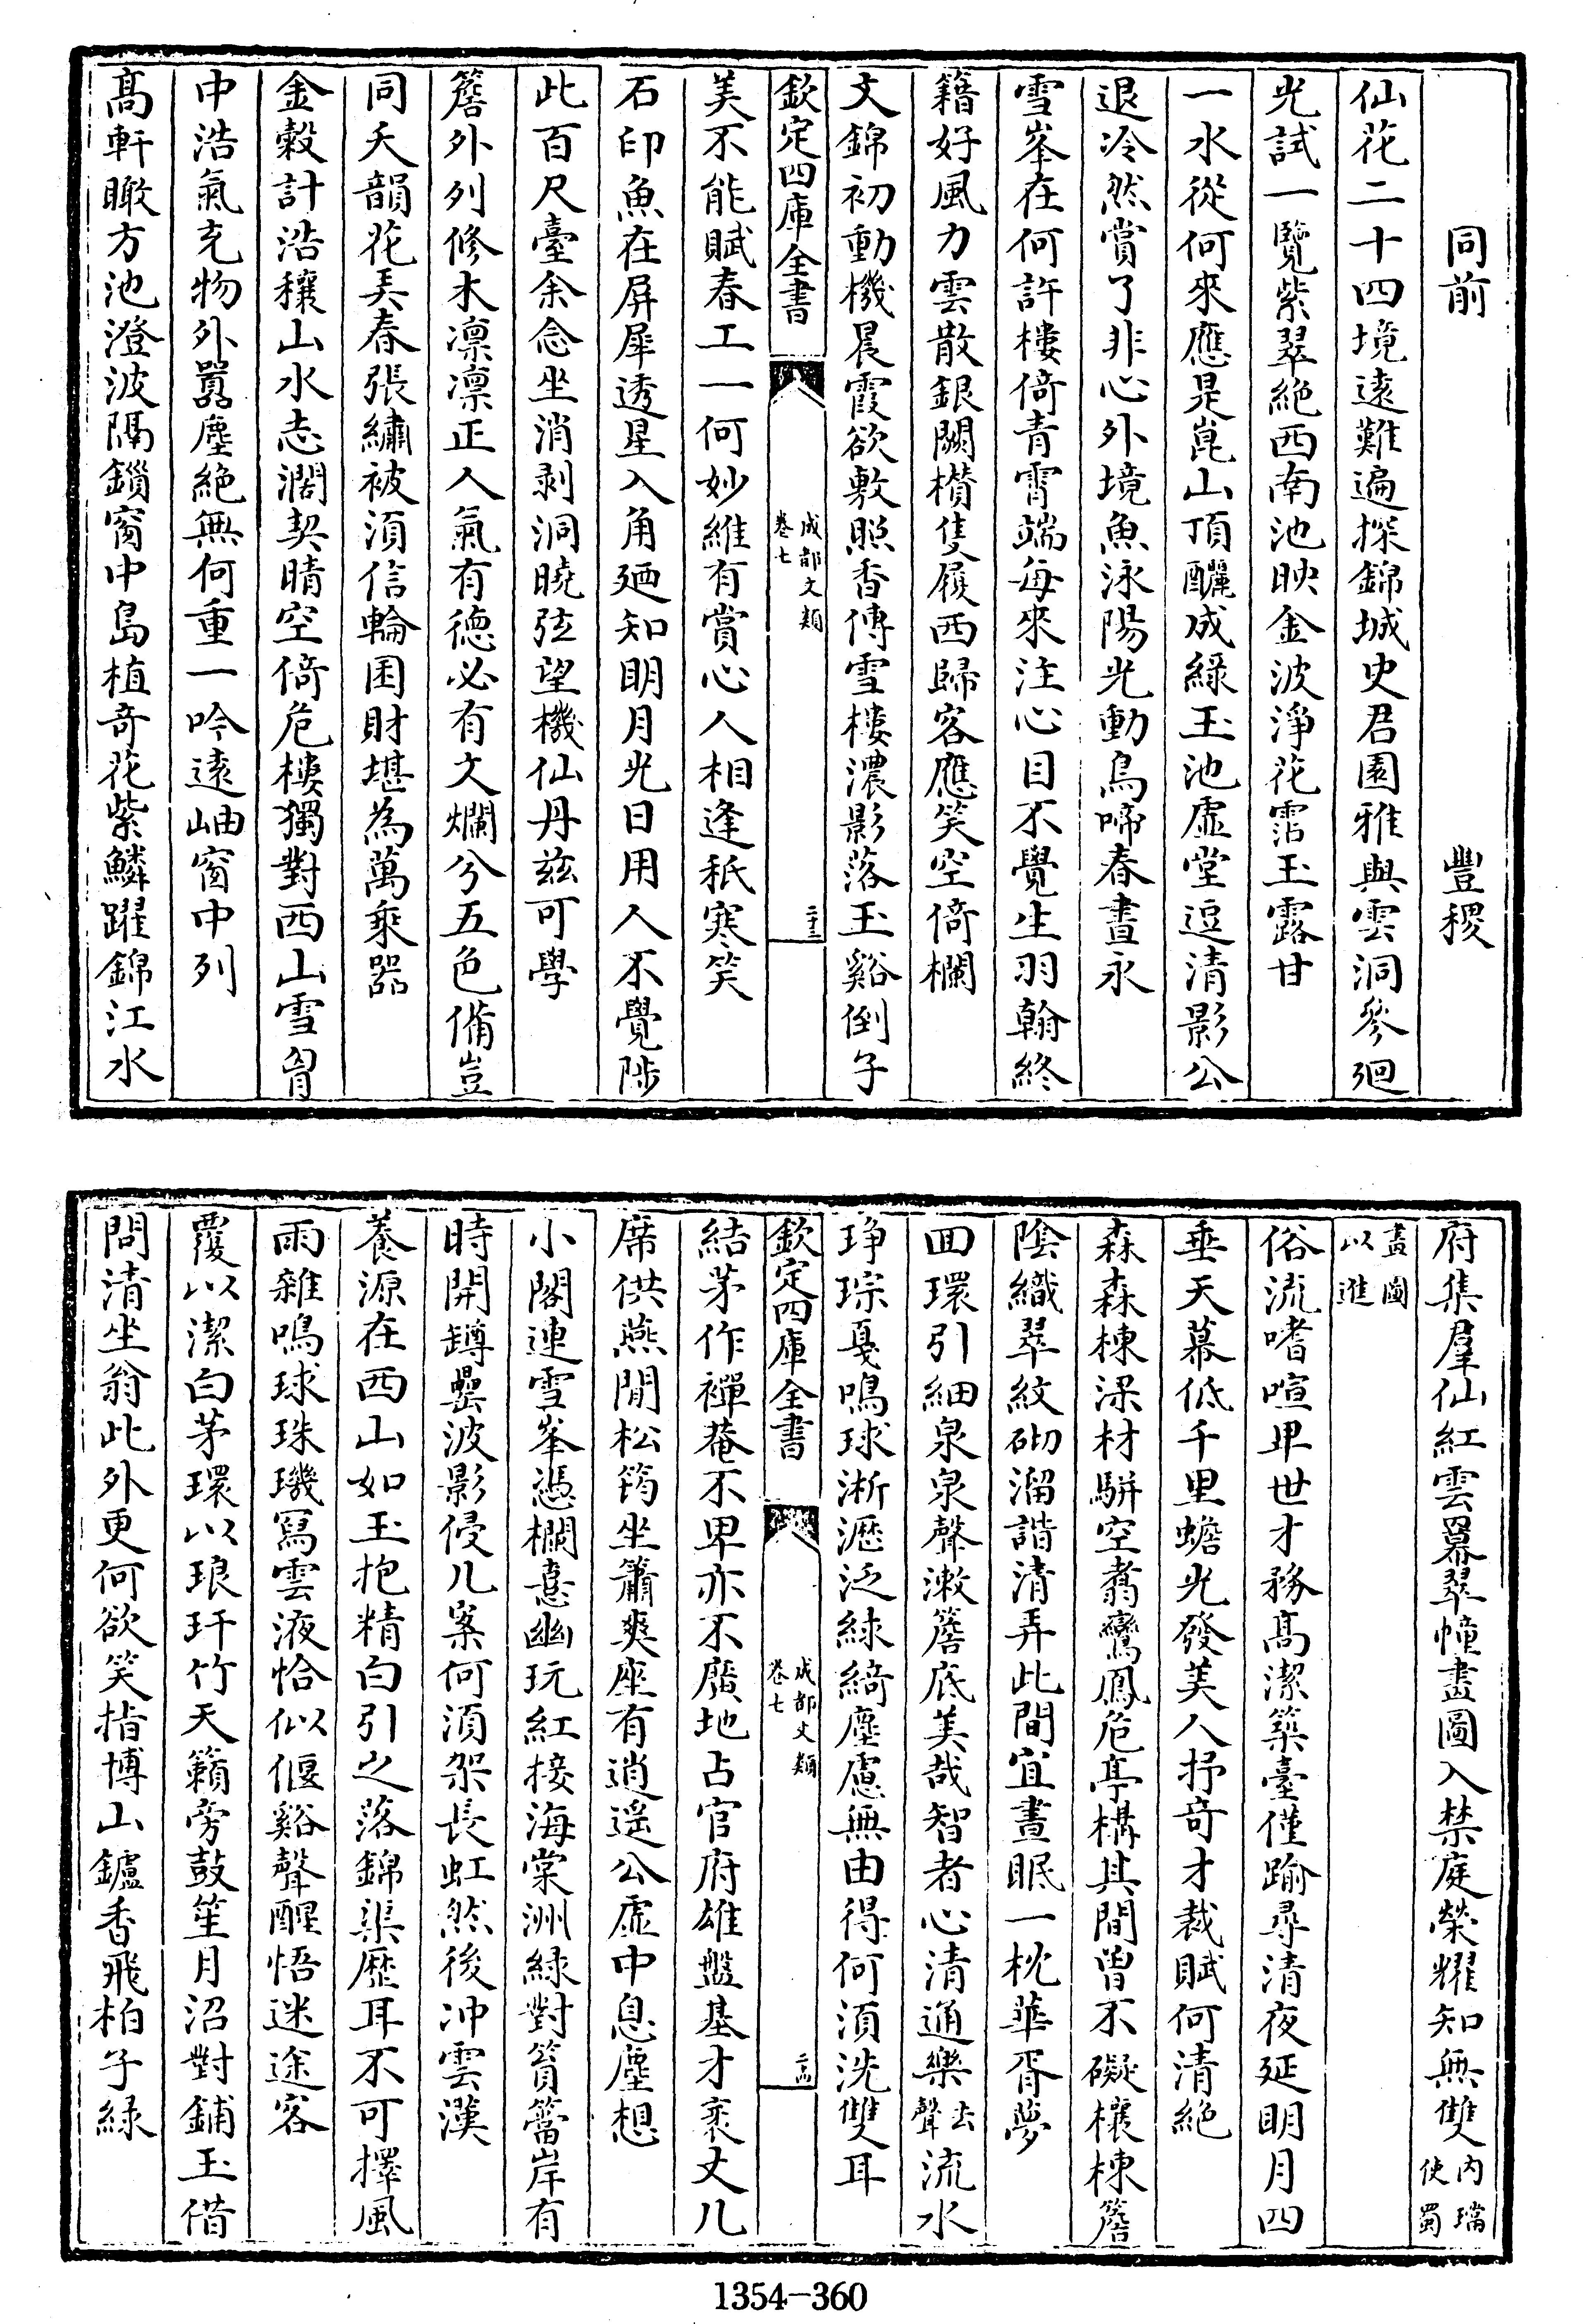 同前　豐稷
仙花二十四境遠難遍探錦城史君園雅與雲洞參廻
光試一覽紫翠絶西南池映金波淨花霑玉露甘
一水從何來應是崑山頂釃成綠玉池虛堂逗清影公
退冷然賞了非心外境魚泳陽光動鳥啼春晝永
雪峯在何許樓倚青霄端每來注心目不覺生羽翰終
籍好風力雲散銀闕欑隻履西歸客應笑空倚欄
文錦初動機晨霞欲敷照香傳雪樓濃影落玉谿倒子
欽定四庫全書
成都文類
卷七
二十三
美不能賦春工一何妙維有賞心人相逢秖寒笑
石印魚在屏犀透星入角廼知明月光日用人不覺陟
此百尺臺余念坐消剥洞曉弦望機仙丹兹可學
簷外列修木凛凛正人氣有德必有文爛兮五色備豈
同夭韻花美春張繡被湏信輪囷財堪為萬乘器
金榖計浩穰山水志濶契晴空倚危樓獨對西山雪胷
中浩氣充物外囂塵絶無何重一吟遠岫窗中列
髙軒瞰方池澄波隔鎻窗中島植竒花紫鱗躍錦江水
府集羣仙紅雲羃翠幢畫圖入禁庭榮耀知無雙内璫使蜀
畫圖以進
俗流嗜喧卑世才務髙潔築臺僅踰尋清夜延明月四
垂天幕低千里蟾光發美人抒竒才裁賦何清絶
森森棟梁材駢空翥鸞鳳危亭構其間曽不礙欀棟簷
陰織翠紋砌溜諧清弄此間宜晝眠一枕華胥夢
回環引細泉泉聲漱簷底美哉智者心清通樂去聲流水
琤琮戛鳴球淅瀝泛緑綺塵慮無由得何湏洗雙耳
欽定四庫全書
成都文類
卷七
二十四
結茅作襌菴不卑亦不廣地占官府雄盤基才袤丈几
席供燕閒松筠坐簫爽座有逍遥公虛中息塵想
小閣連雪峯憑欄憙幽玩紅接海棠洲緑對篔簹岸有
時開罇罍波影侵几案何湏架長虹然後冲雲漢
養源在西山如玉抱精白引之落錦渠歴耳不可擇風
雨雜鳴球珠璣冩雲液恰似偃谿聲醒悟迷途客
覆以潔白茅環以琅玕竹天籟旁鼓笙月沼對鋪玉借
問清坐翁此外更何欲笑指博山鑪香飛柏子緑
1354—360